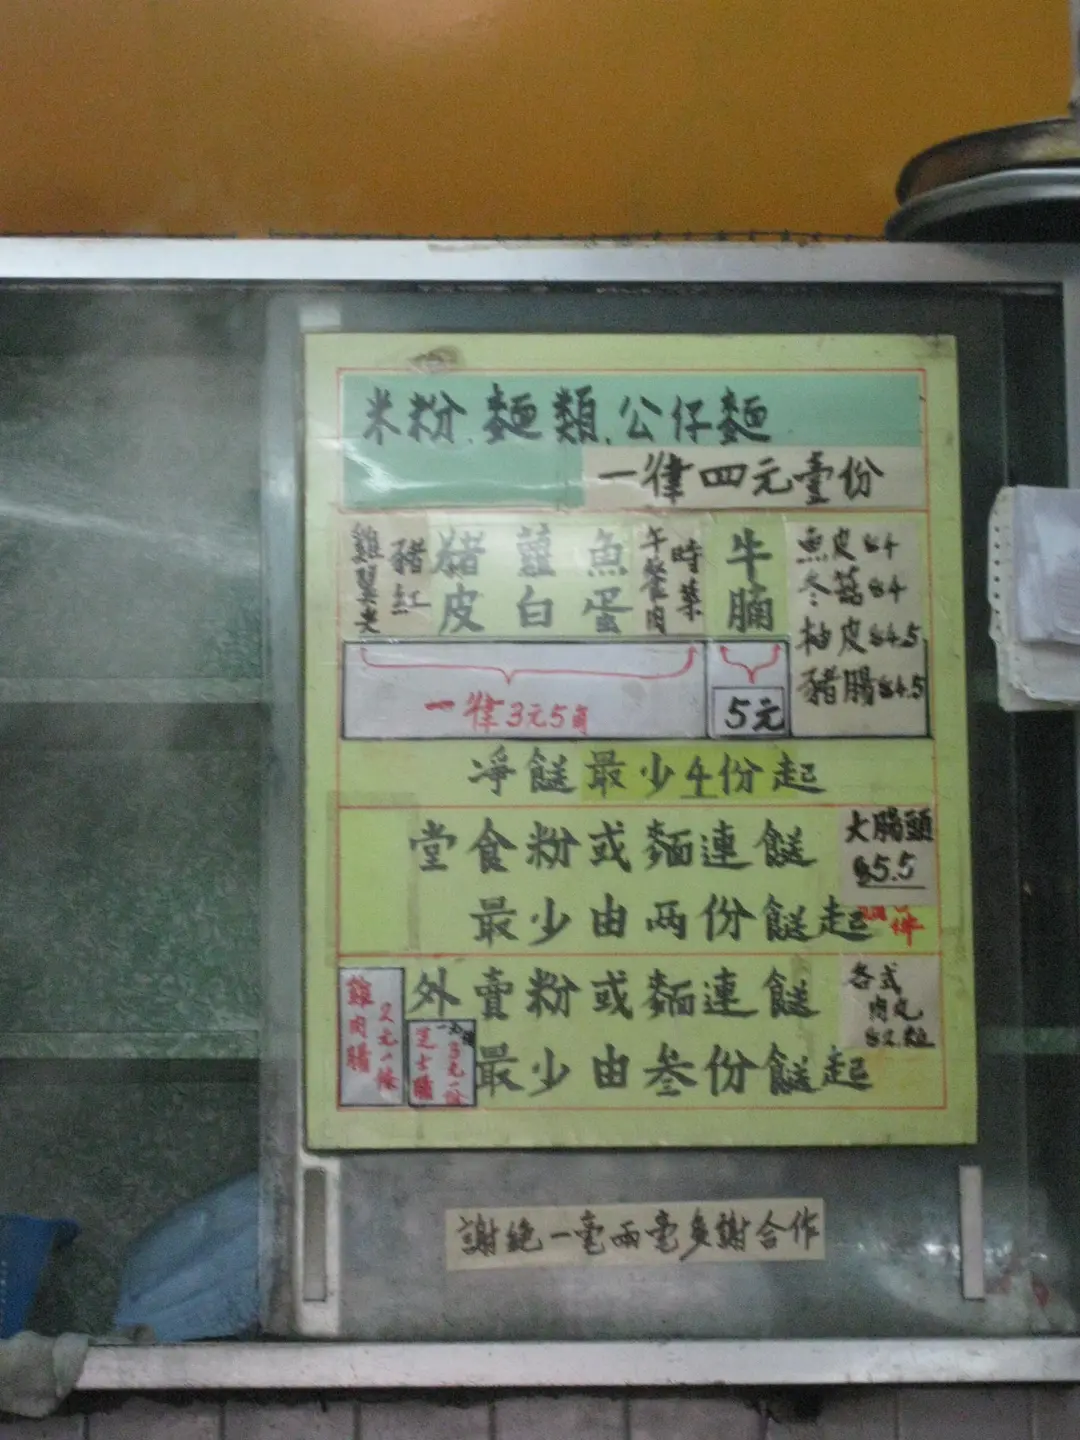 米粉.麵類.公仔麵
一律四元壹份
雞翼尖
豬紅
豬皮
蘿白
魚蛋
午餐肉
時菜
牛腩
魚皮$4
冬菇$4
柚皮$4.5
豬腸$4.5
一律3元5角
5元
凈餸最少4份起
堂食粉或麵連餸
最少由兩份餸起
大腸頭
$5.5
件
外賣粉或麵連餸
最少由叁份餸起
各式
肉丸
$2.粒
雞肉腸
2元一條
芝士腸
謝絕一毫兩毫多謝合作